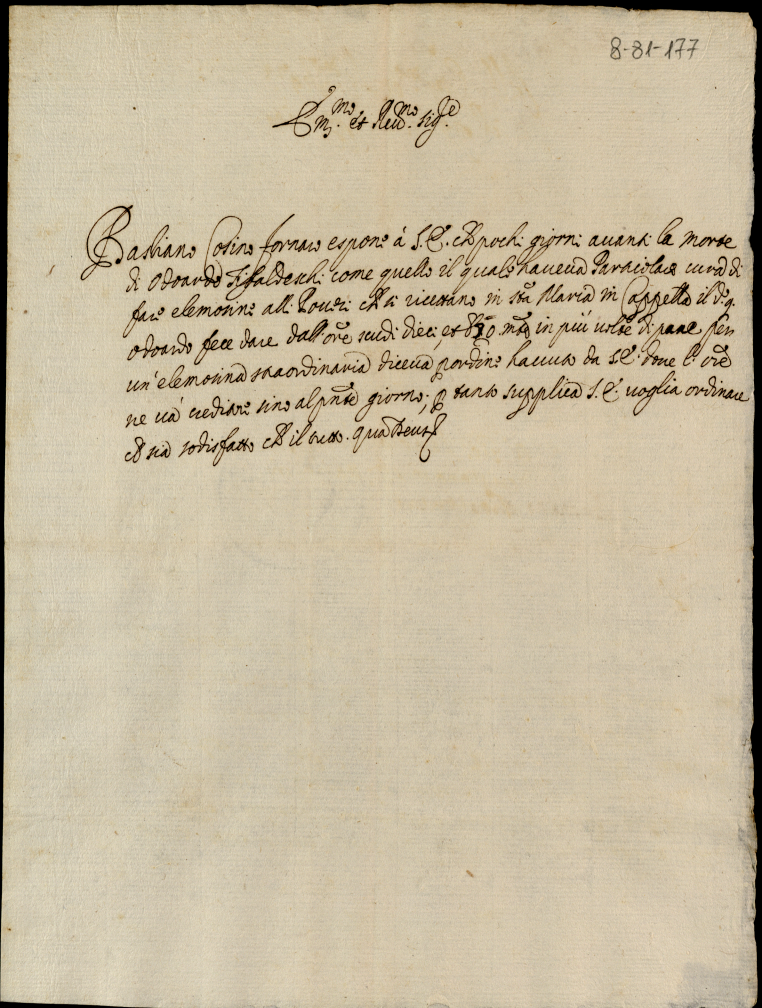 8-81-177
Em.mo et Reu.mo Sig.re
Bastiano Cosino fornaro espone à S. E. ch pochi giorni auanti la morte
di Odoardo Tibaldeschi come quello il quale haueua particolar cura di
fare elemosine alli Poueri ch si ricettano in Sta Maria in Cappella il do q.
Odoardo fece dare dall'ore scudi dieci, et b 30 mta in più uolte di pane per
un' elemosina straordinaria diceua p ordine hauuto da S. E. doue l'ore
ne uà creditore sino al pnte giorno; p tanto supplica S. E. uoglia ordinare
ch sia sodisfatto ch il tutto. qua Deus